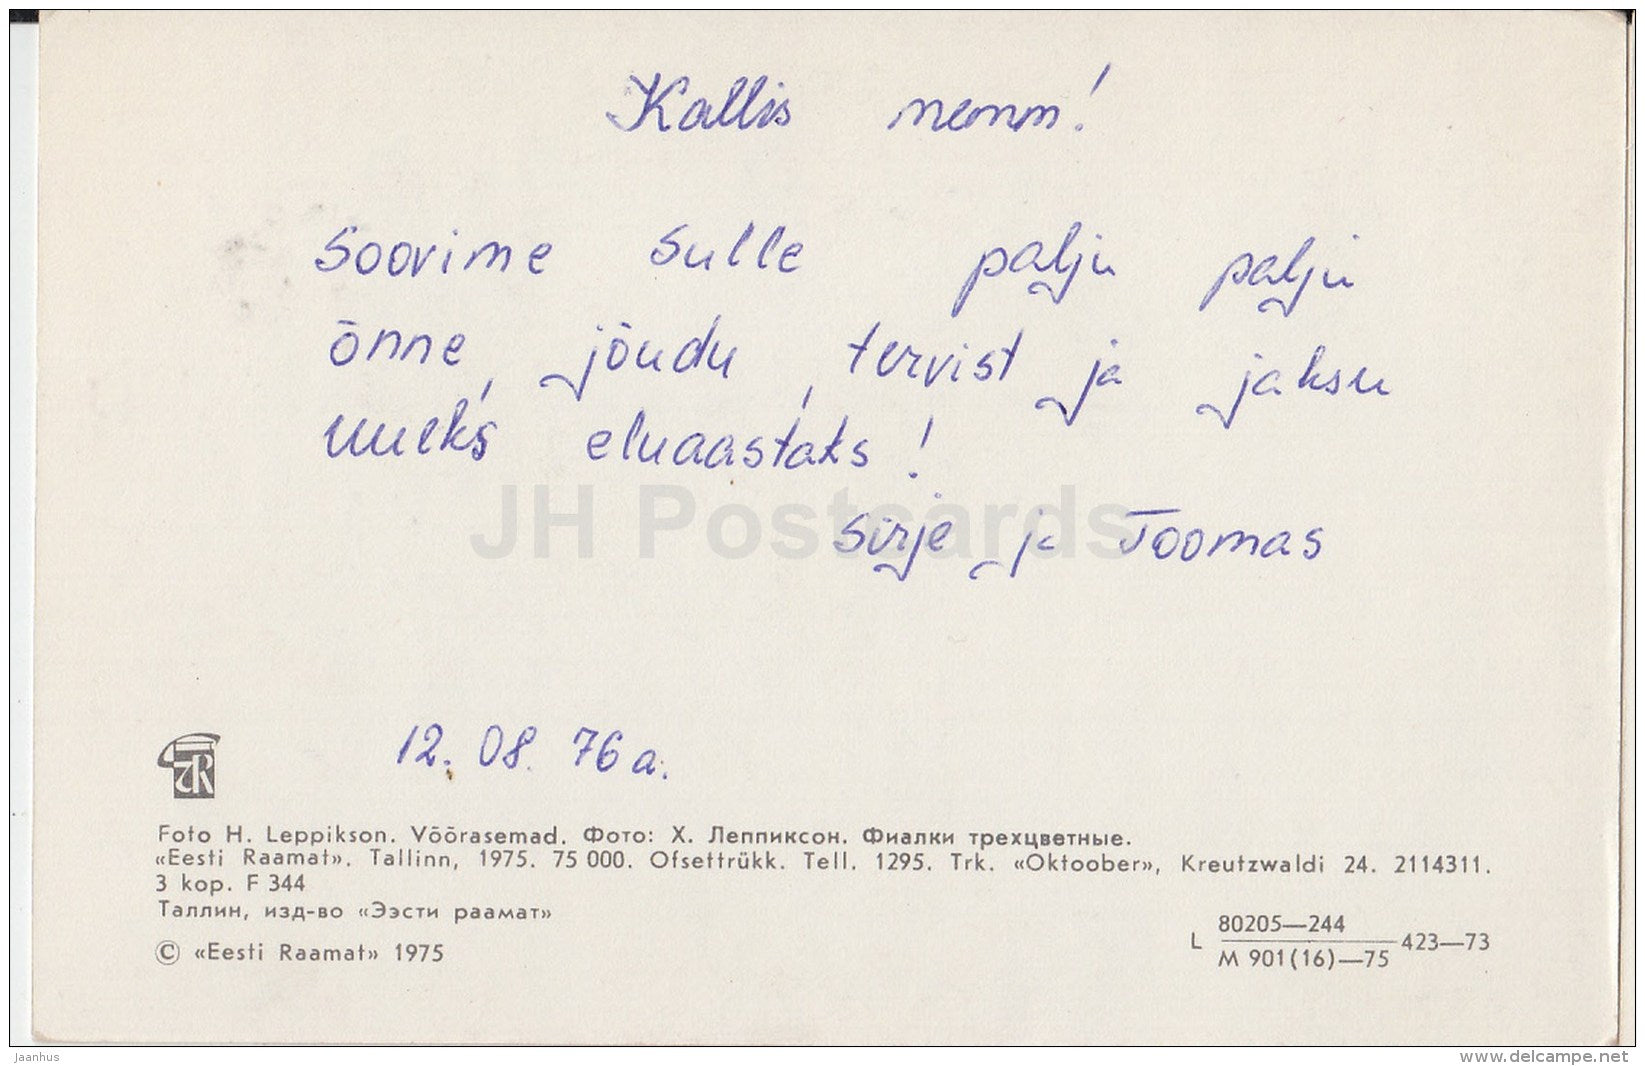 Kallis memm!
Soovime Sulle palju palju
õnne, jõudu, tervist ja jaksu
uueks eluaastaks!
Sirje ja Toomas
JH Postcards
12. 08. 76 a.
Foto H. Leppikson. Võõrasemad. Фото: Х. Леппиксон. Фиалки трехцветные.
«Eesti Raamat». Tallinn, 1975. 75 000. Ofsettrükk. Tell. 1295. Trk. «Oktoober», Kreutzwaldi 24. 2114311.
3 kop. F 344
Таллин, изд-во «Ээсти раамат»
© «Eesti Raamat» 1975
L 80205—244
M 901(16)—75 423—73
jaanhus
www.delcampe.net